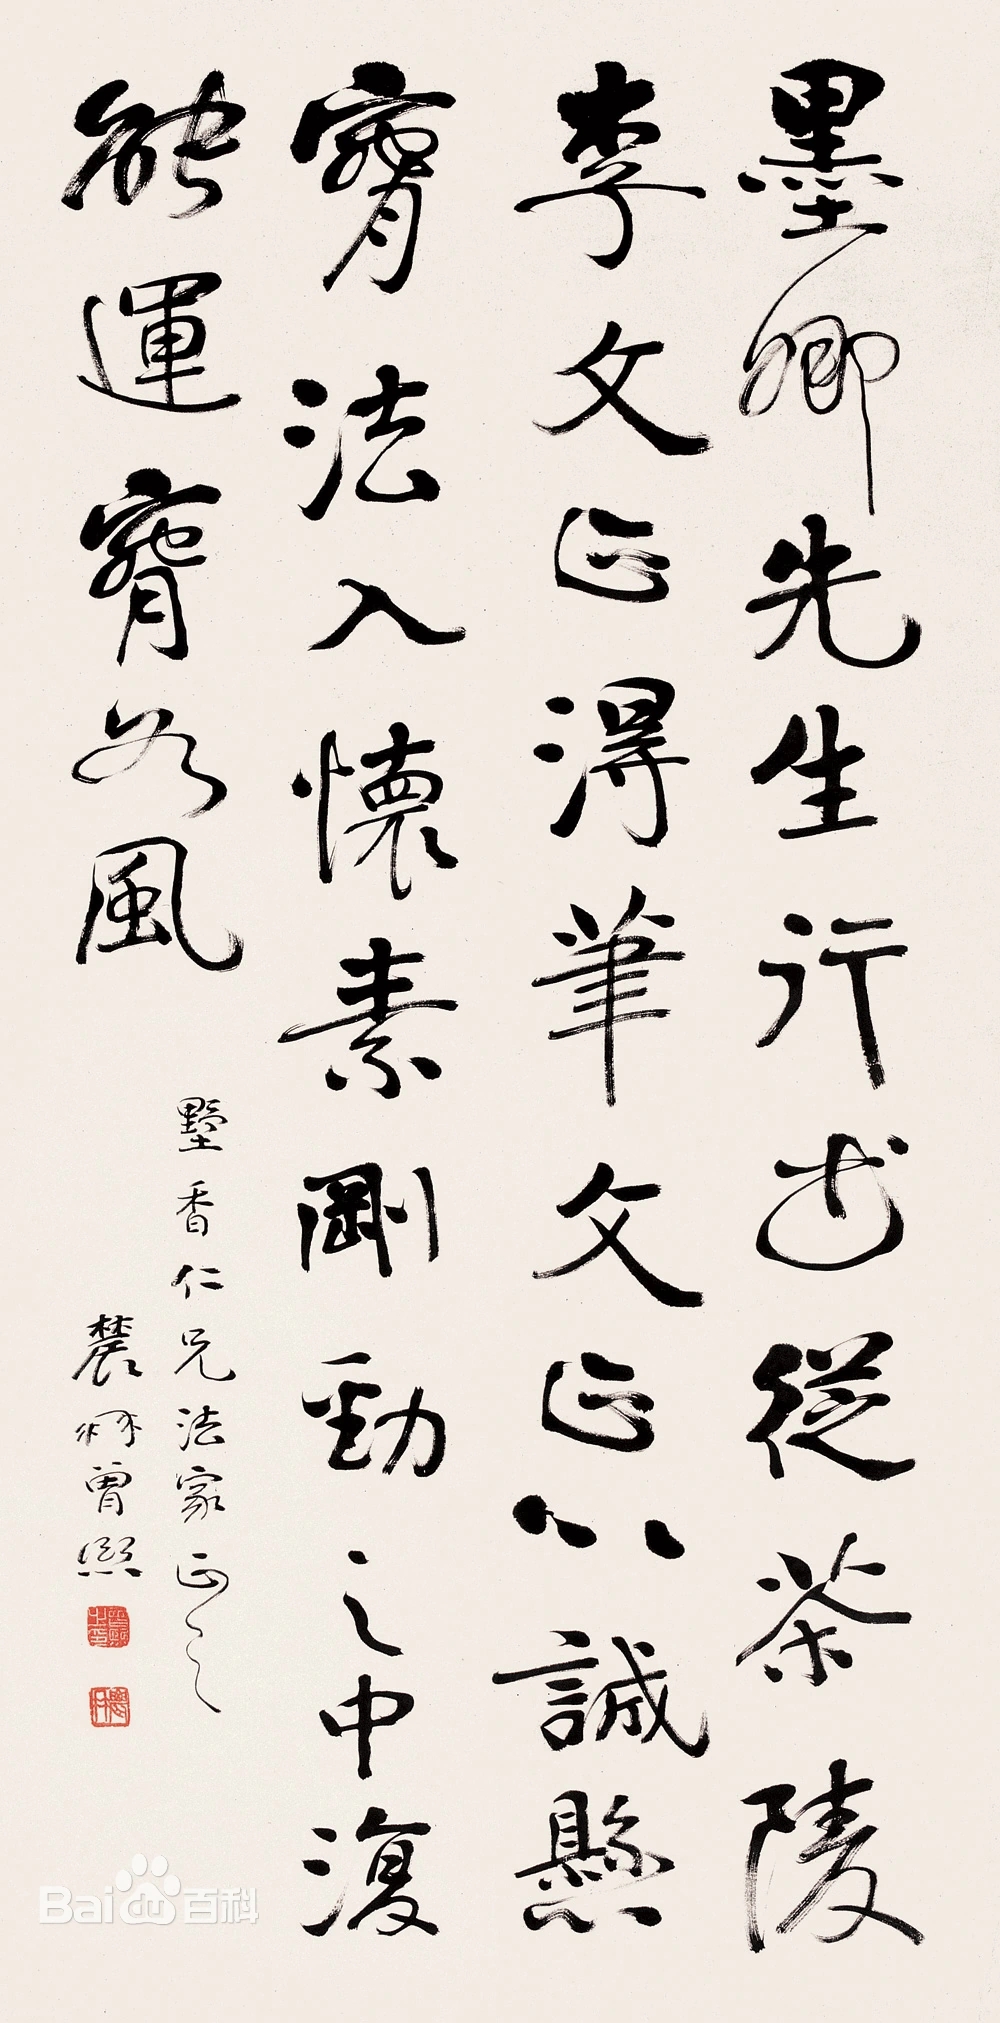 墨卿先生行書從茶陵
李文正得筆文正以誠懸
腕法入懷素剛勁之中復
能運腕如風
墅香仁兄法家正之
農髯曾熙
Bai百科